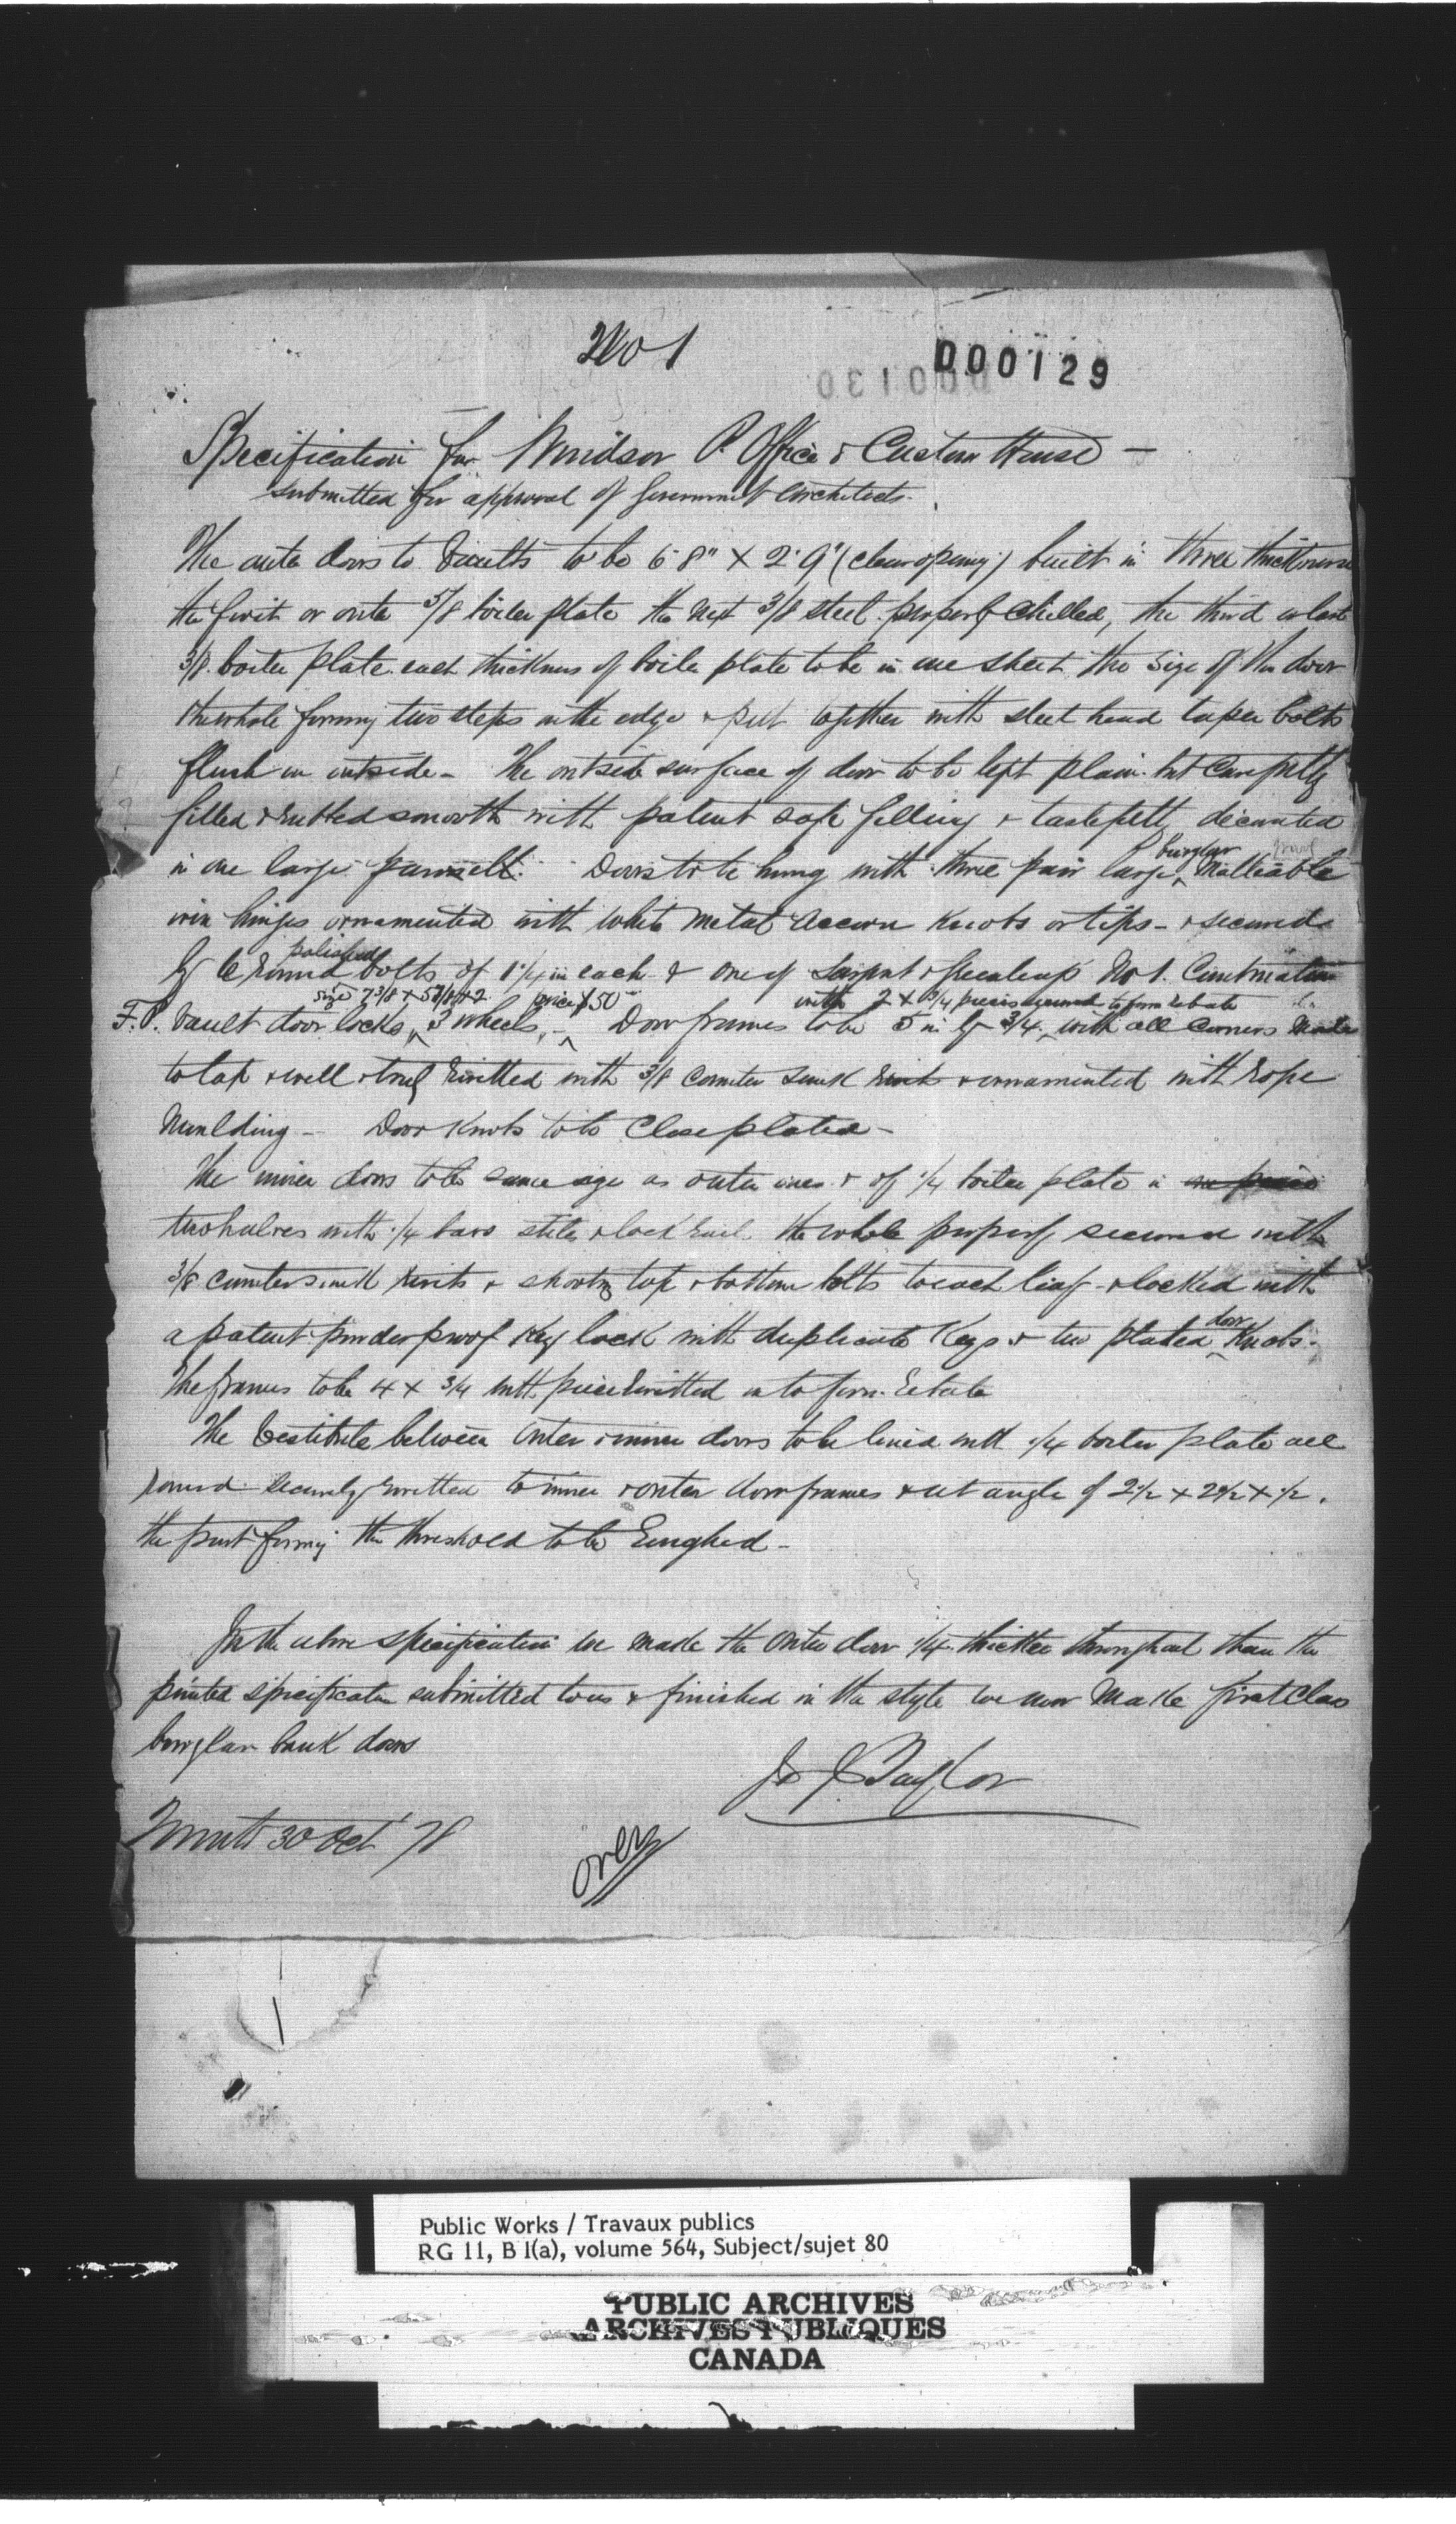 No 1
000129
000130
Specification for Windsor P. Office & Custom House —
submitted for approval of Government Architects.
The outer doors to Vaults to be 6' 8" x 2' 9" (clear opening) built in three thicknesses
the first or outer 5/8 boiler plate the next 3/8 steel properly chilled, the third or last
3/8 boiler plate each thickness of boiler plate to be in one sheet the size of the door
the whole forming two steps on the edge & put together with steel head taper bolts
flush on outside - The outside surface of door to be left plain but carefully
filled & rubbed smooth with patent safe filling & tastefully decorated
burglar proof
in one large pannell. Doors to be hung with three pair large ^ Malleable
iron hinges ornamented with white metal accorn knobs or tips - & secured
polished
by 6 round bolts of 1 1/4 in each & one of Sargent & Greenleafs No 1. Combination
size 7 3/8 x 5 7/8 x 2 price $50 with 2 x 3/4 pieces to form rebate
F.P. Vault door locks, ^ 3 wheels, ^ - Door frames to be 5 in by 3/4 ^ with all corners made
to lap & well & truly rivitted with 3/8 counter sunk rivets & ornamented with rope
Moulding - Door knobs to be Close plated -
The inner doors to be same size as outer ones & of 1/4 boiler plate in one piece
two halves with 1/4 bars stile & lock rail the whole properly secured with
3/8 counter sunk rivits & shooting top & bottom bolts to each leaf - & locked with
door
a patent powder proof Key lock with duplicate Keys & two plated ^ Knobs -
The frames to be 4 x 3/4 with piece rivitted on to form Rebate
The Vestibule between Outer & inner doors to be lined with 1/4 boiler plate all
round securely rivetted to inner & outer door frames & at angle of 2 1/2 x 2 1/2 x 1/2.
the part forming the threshold to be Roughed -
In the above specification we make the Outer door 1/4 thicker throughout than the
printed specification submitted to us & finished in the style we now Make first Class
burglar bank doors
J & J Taylor
Toronto 30 Oct /78
over
Public Works / Travaux publics
RG 11, B 1(a), volume 564, Subject/sujet 80
PUBLIC ARCHIVES
ARCHIVES PUBLIQUES
CANADA